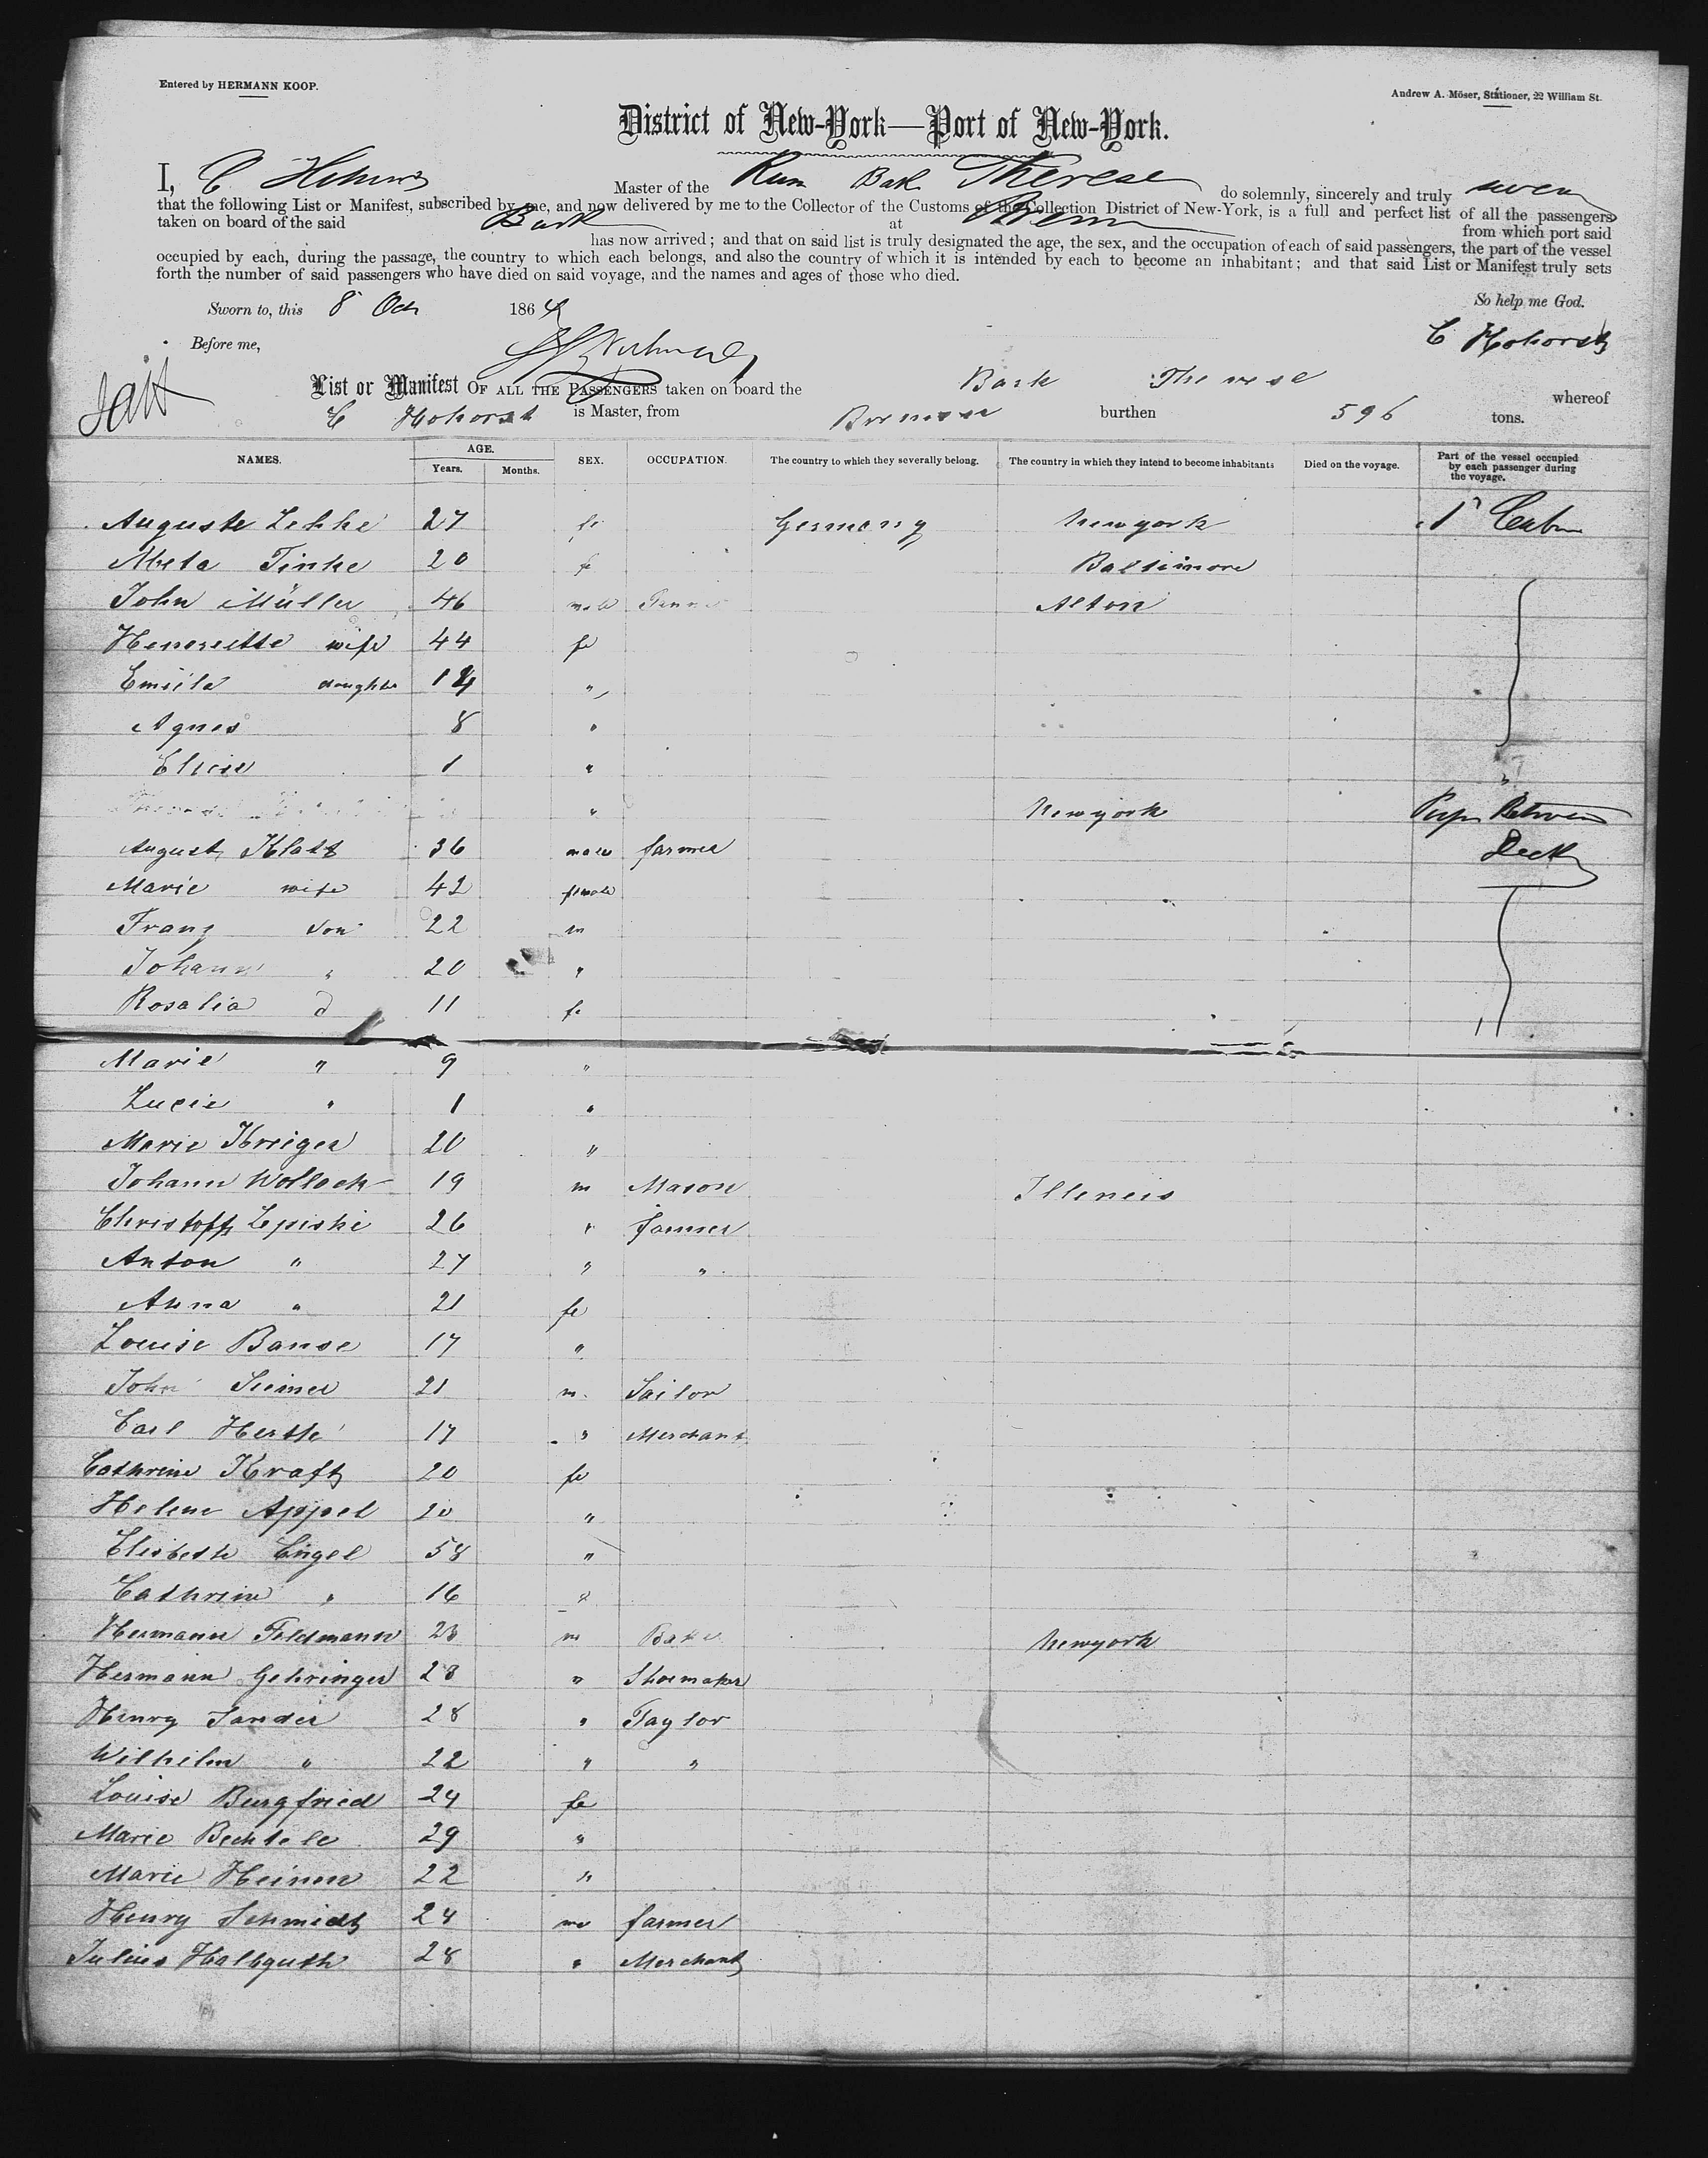 Entered by HERMANN KOOP.
Andrew A. Möser, Stationer, 22 William St.
District of New-York—Port of New-York.
I, C Master of the Bark Therese do solemnly, sincerely and truly swear
that the following List or Manifest, subscribed by me, and now delivered by me to the Collector of the Customs of the Collection District of New-York, is a full and perfect list of all the passengers
taken on board of the said Bark at Bremen from which port said
has now arrived; and that on said list is truly designated the age, the sex, and the occupation of each of said passengers, the part of the vessel
occupied by each, during the passage, the country to which each belongs, and also the country of which it is intended by each to become an inhabitant; and that said List or Manifest truly sets
forth the number of said passengers who have died on said voyage, and the names and ages of those who died.
Sworn to, this 8 Oct 1864 So help me God.
Before me, C Hohorst
List or Manifest OF ALL THE PASSENGERS taken on board the Bark Therese whereof
C Hohorst is Master, from Bremen burthen 596 tons.
NAMES. AGE. Years. Months. SEX. OCCUPATION. The country to which they severally belong. The country in which they intend to become inhabitants Died on the voyage. Part of the vessel occupied by each passenger during the voyage.
Auguste 27 fe Germany Newyork 1 Cabin
Meta Tinke 20 Baltimore
John Müller 46 male Alton
Henriette wife 44 fe
Emiile daughter 14 "
Agnes 8 "
Elise 1 "
" Newyork Between
August Klatt 36 male farmer Deck
Marie wife 42 female
Franz son 22 m
Johann " 20 "
Rosalia d 11 fe
Marie " 9 "
Lucie " 1 "
Marie Krieger 20 "
Johann Wollack 19 m Mason Illeneis
Christoff Lepiski 26 " farmer
Anton " 27 " "
Anna " 21 fe
Louise Banse 17 "
John 21 m Sailor
Carl Herthe 17 " Merchant
Cathrine Kraft 20 fe
Helene Appel 20 "
Elisbeth Engel 58 "
Cathrine " 16
Hermann Feldmann 23 m Baker Newyork
Hermann Gehringer 28 " Shoemaker
Henry Sander 28 " Taylor
Wilhelm " 22 " "
Louise Burgfried 24 fe
Marie Bechtele 29 "
Marie Heinen 22 "
Henry Schmidt 24 m farmer
Julius Halbguth 28 " Merchant